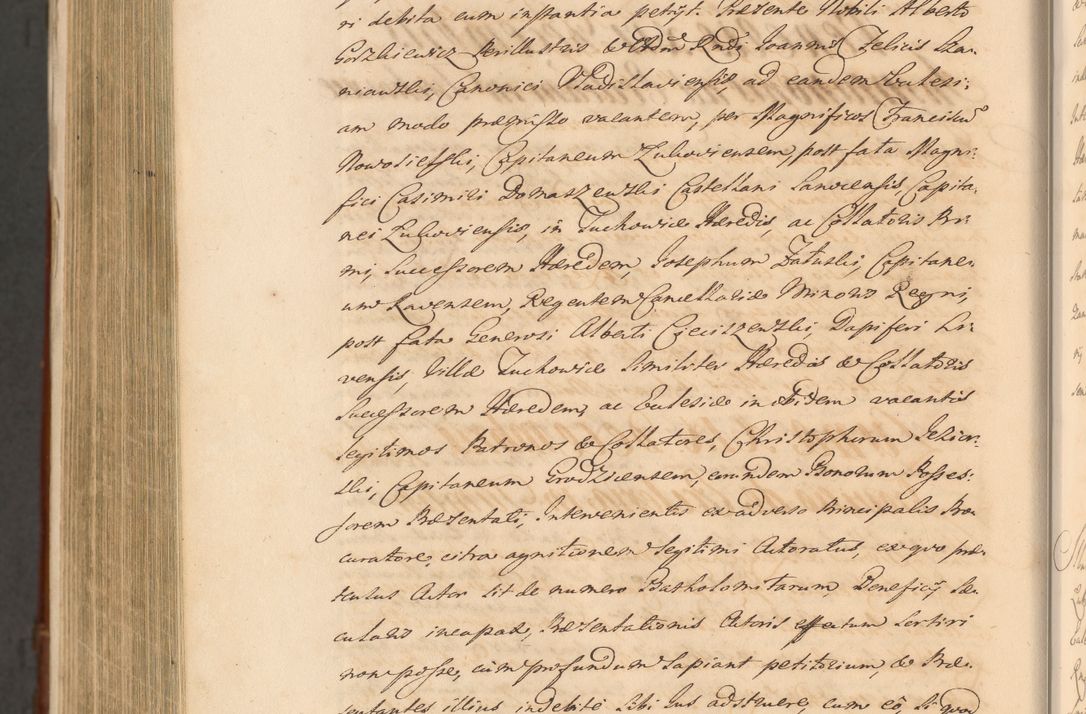 ri debita cum instantia petijt. Præsente Nobili Alberto
Gorzkiewicz Perillustris & Adm Rndi Joannis Felicis Sza-
niawski, Canonici Vladislaviensis, ad eandem Ecclesi-
am modo præmisso vacantem, per Magnificos Franciscũ
Nowosielski, Capitaneum Lukoviensem, post fata Magni-
fici Casimiri Domaszewski Castellani Sanocensis, Capita-
nei Lukoviensis, in Tuchowicz Hæredis, ac Collatoris Pri-
mi, Successorem Hæredem, Josephum Załuski, Capitane-
um Ravensem, Regentem Cancellariæ Minoris Regni,
post fata Generosi Alberti Cieciszewski, Dapiferi Li-
vensis, Villæ Tuchowicz Similiter Hæredis & Collatoris
Successorem Hæredem, ac Ecclesiæ in ibidem vacantis
legitimos Patronos & Collatores, Christophorum Sielic-
ski, Capitaneum Grodzicensem, eorundem Bonorum Posses-
sorem Præsentati, Intervenientis ex adverso Principalis Pro-
curatore, citra agnitionem legitimi Actoratus, ex quo præ-
tensus Actor sit de numero Bartholomitarum, Beneficij Sæ-
cularis incapax, Præsentationis Actoris effectum Sortiri
non posse, cum profundum sapiant petitorium, & Præ-
sentantes illius indebite sibi Jus adstruere, cum eo, si quod